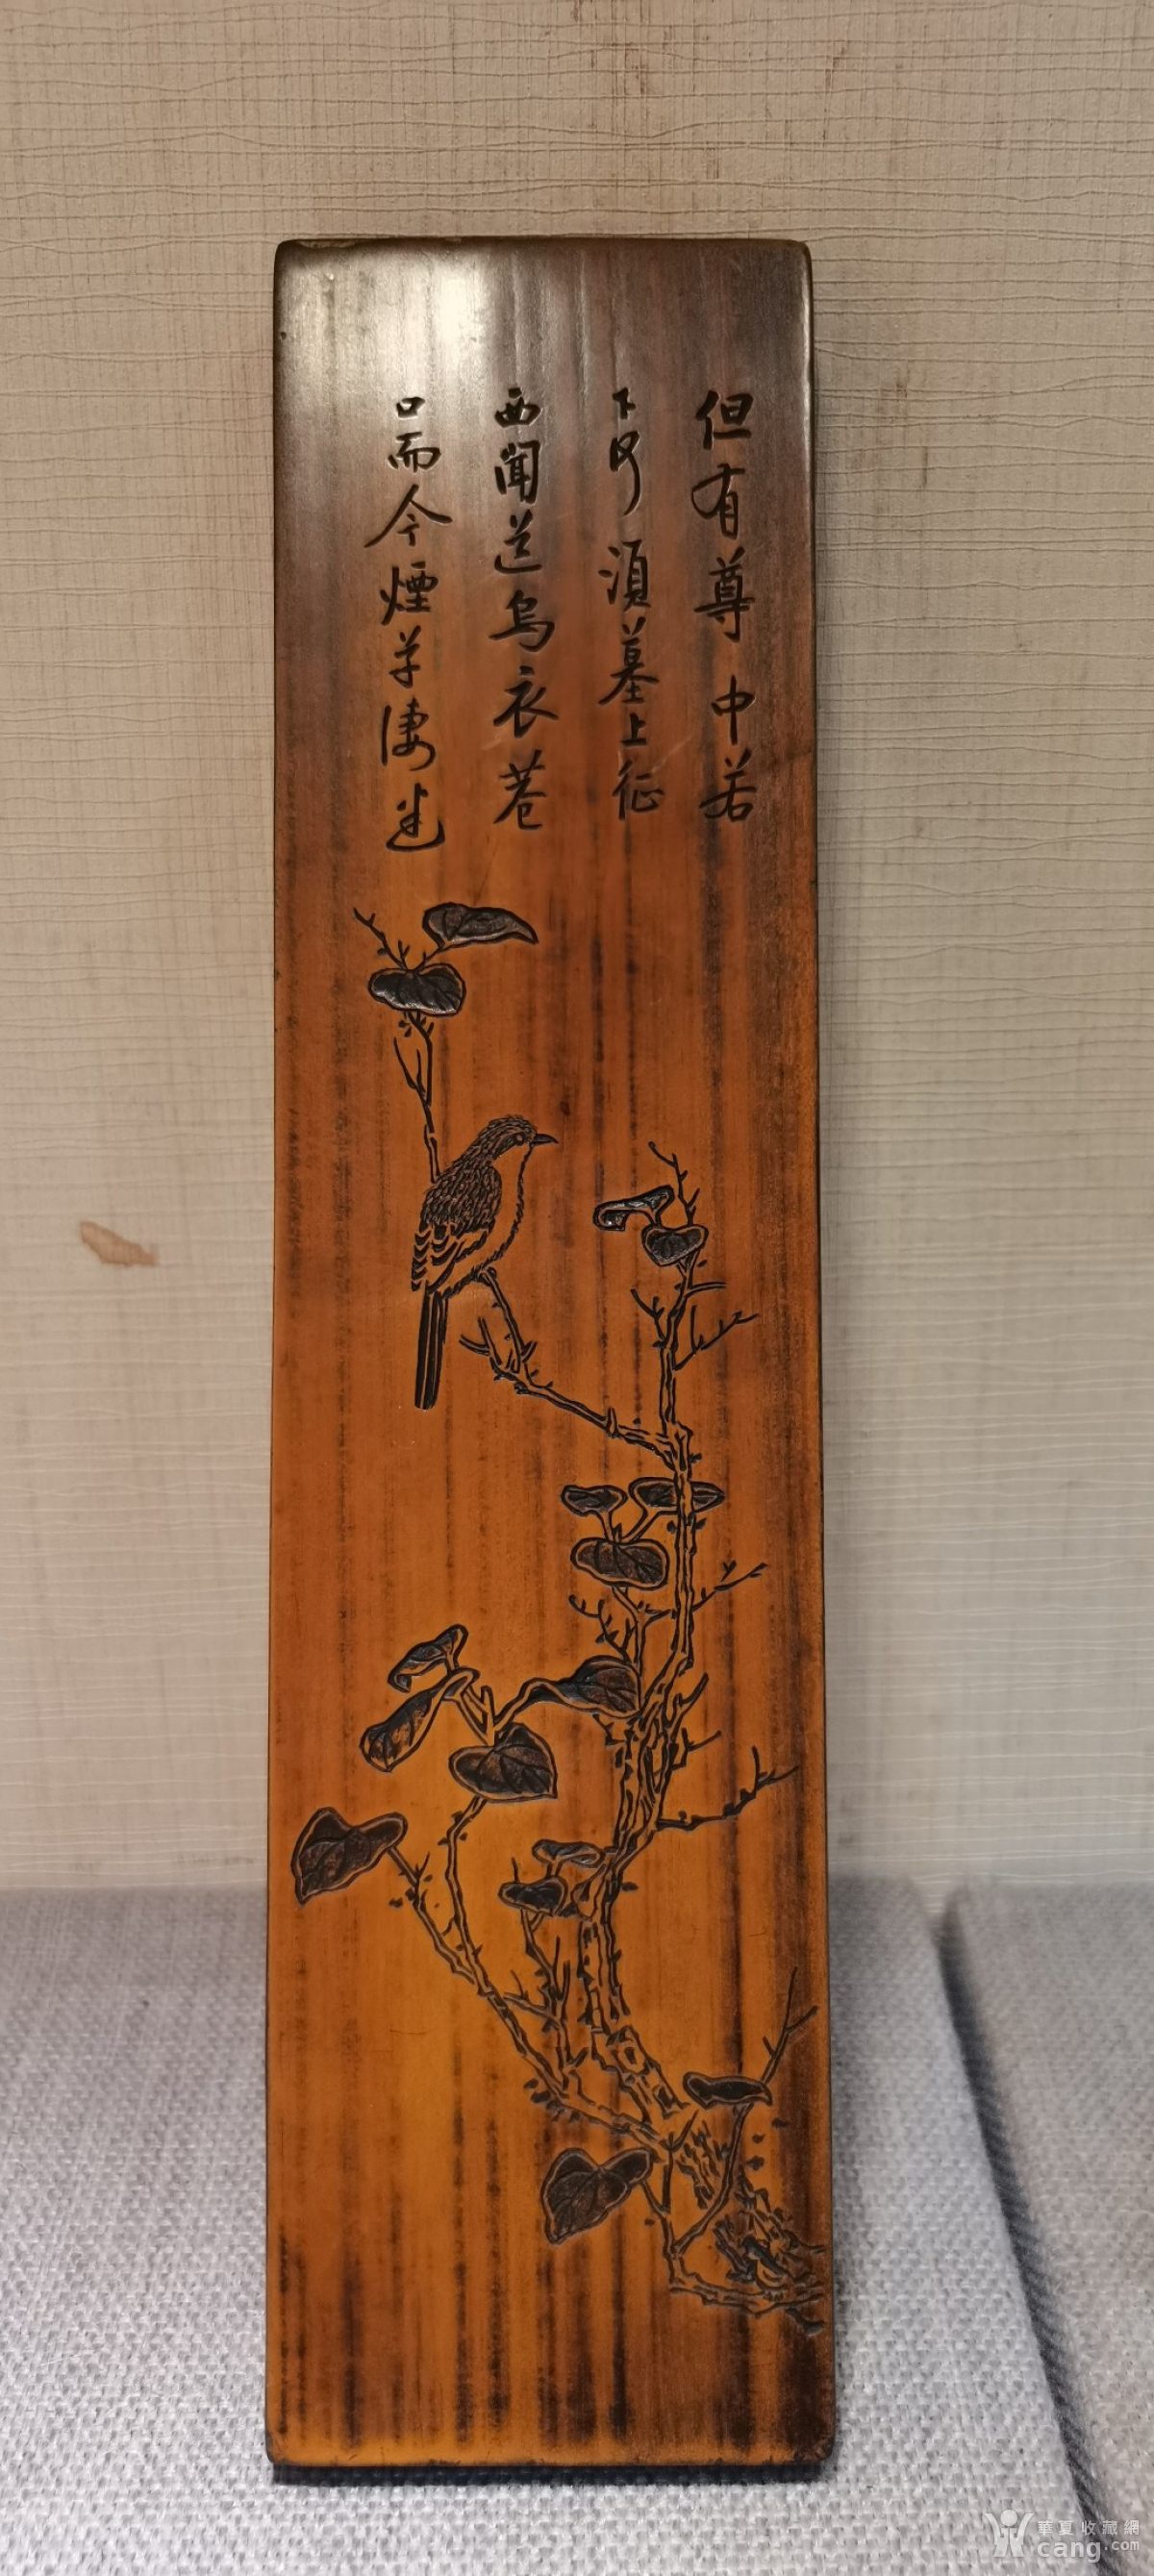 但有尊中若
下何須墓上征
西闻道烏衣巷
口而今煙草凄迷
華夏收藏網
cang.com